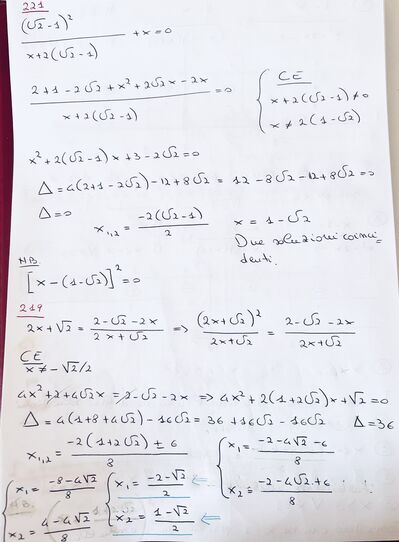 221
(√2-1)²/(x+2(√2-1)) + x = 0
(2+1-2√2+x²+2√2x-2x)/(x+2(√2-1)) = 0
CE
x+2(√2-1) ≠ 0
x ≠ 2(1-√2)
x²+2(√2-1)x+3-2√2=0
Δ = 4(2+1-2√2)-12+8√2 = 12-8√2-12+8√2=0
Δ=0
x₁,₂ = -2(√2-1)/2 x = 1-√2
Due soluzioni coinci-
denti.
NB.
[x-(1-√2)]²=0
219
2x+√2 = (2-√2-2x)/(2x+√2) => (2x+√2)²/(2x+√2) = (2-√2-2x)/(2x+√2)
CE
x ≠ -√2/2
4x²+2+4√2x = 2-√2-2x => 4x²+2(1+2√2)x+√2=0
Δ = 4(1+8+4√2)-16√2 = 36+16√2-16√2 Δ=36
x₁,₂ = (-2(1+2√2) ± 6)/8
x₁ = (-2-4√2-6)/8
x₂ = (-2-4√2+6)/8
x₁ = (-8-4√2)/8
x₂ = (4-4√2)/8
x₁ = (-2-√2)/2 <=
x₂ = (1-√2)/2 <=